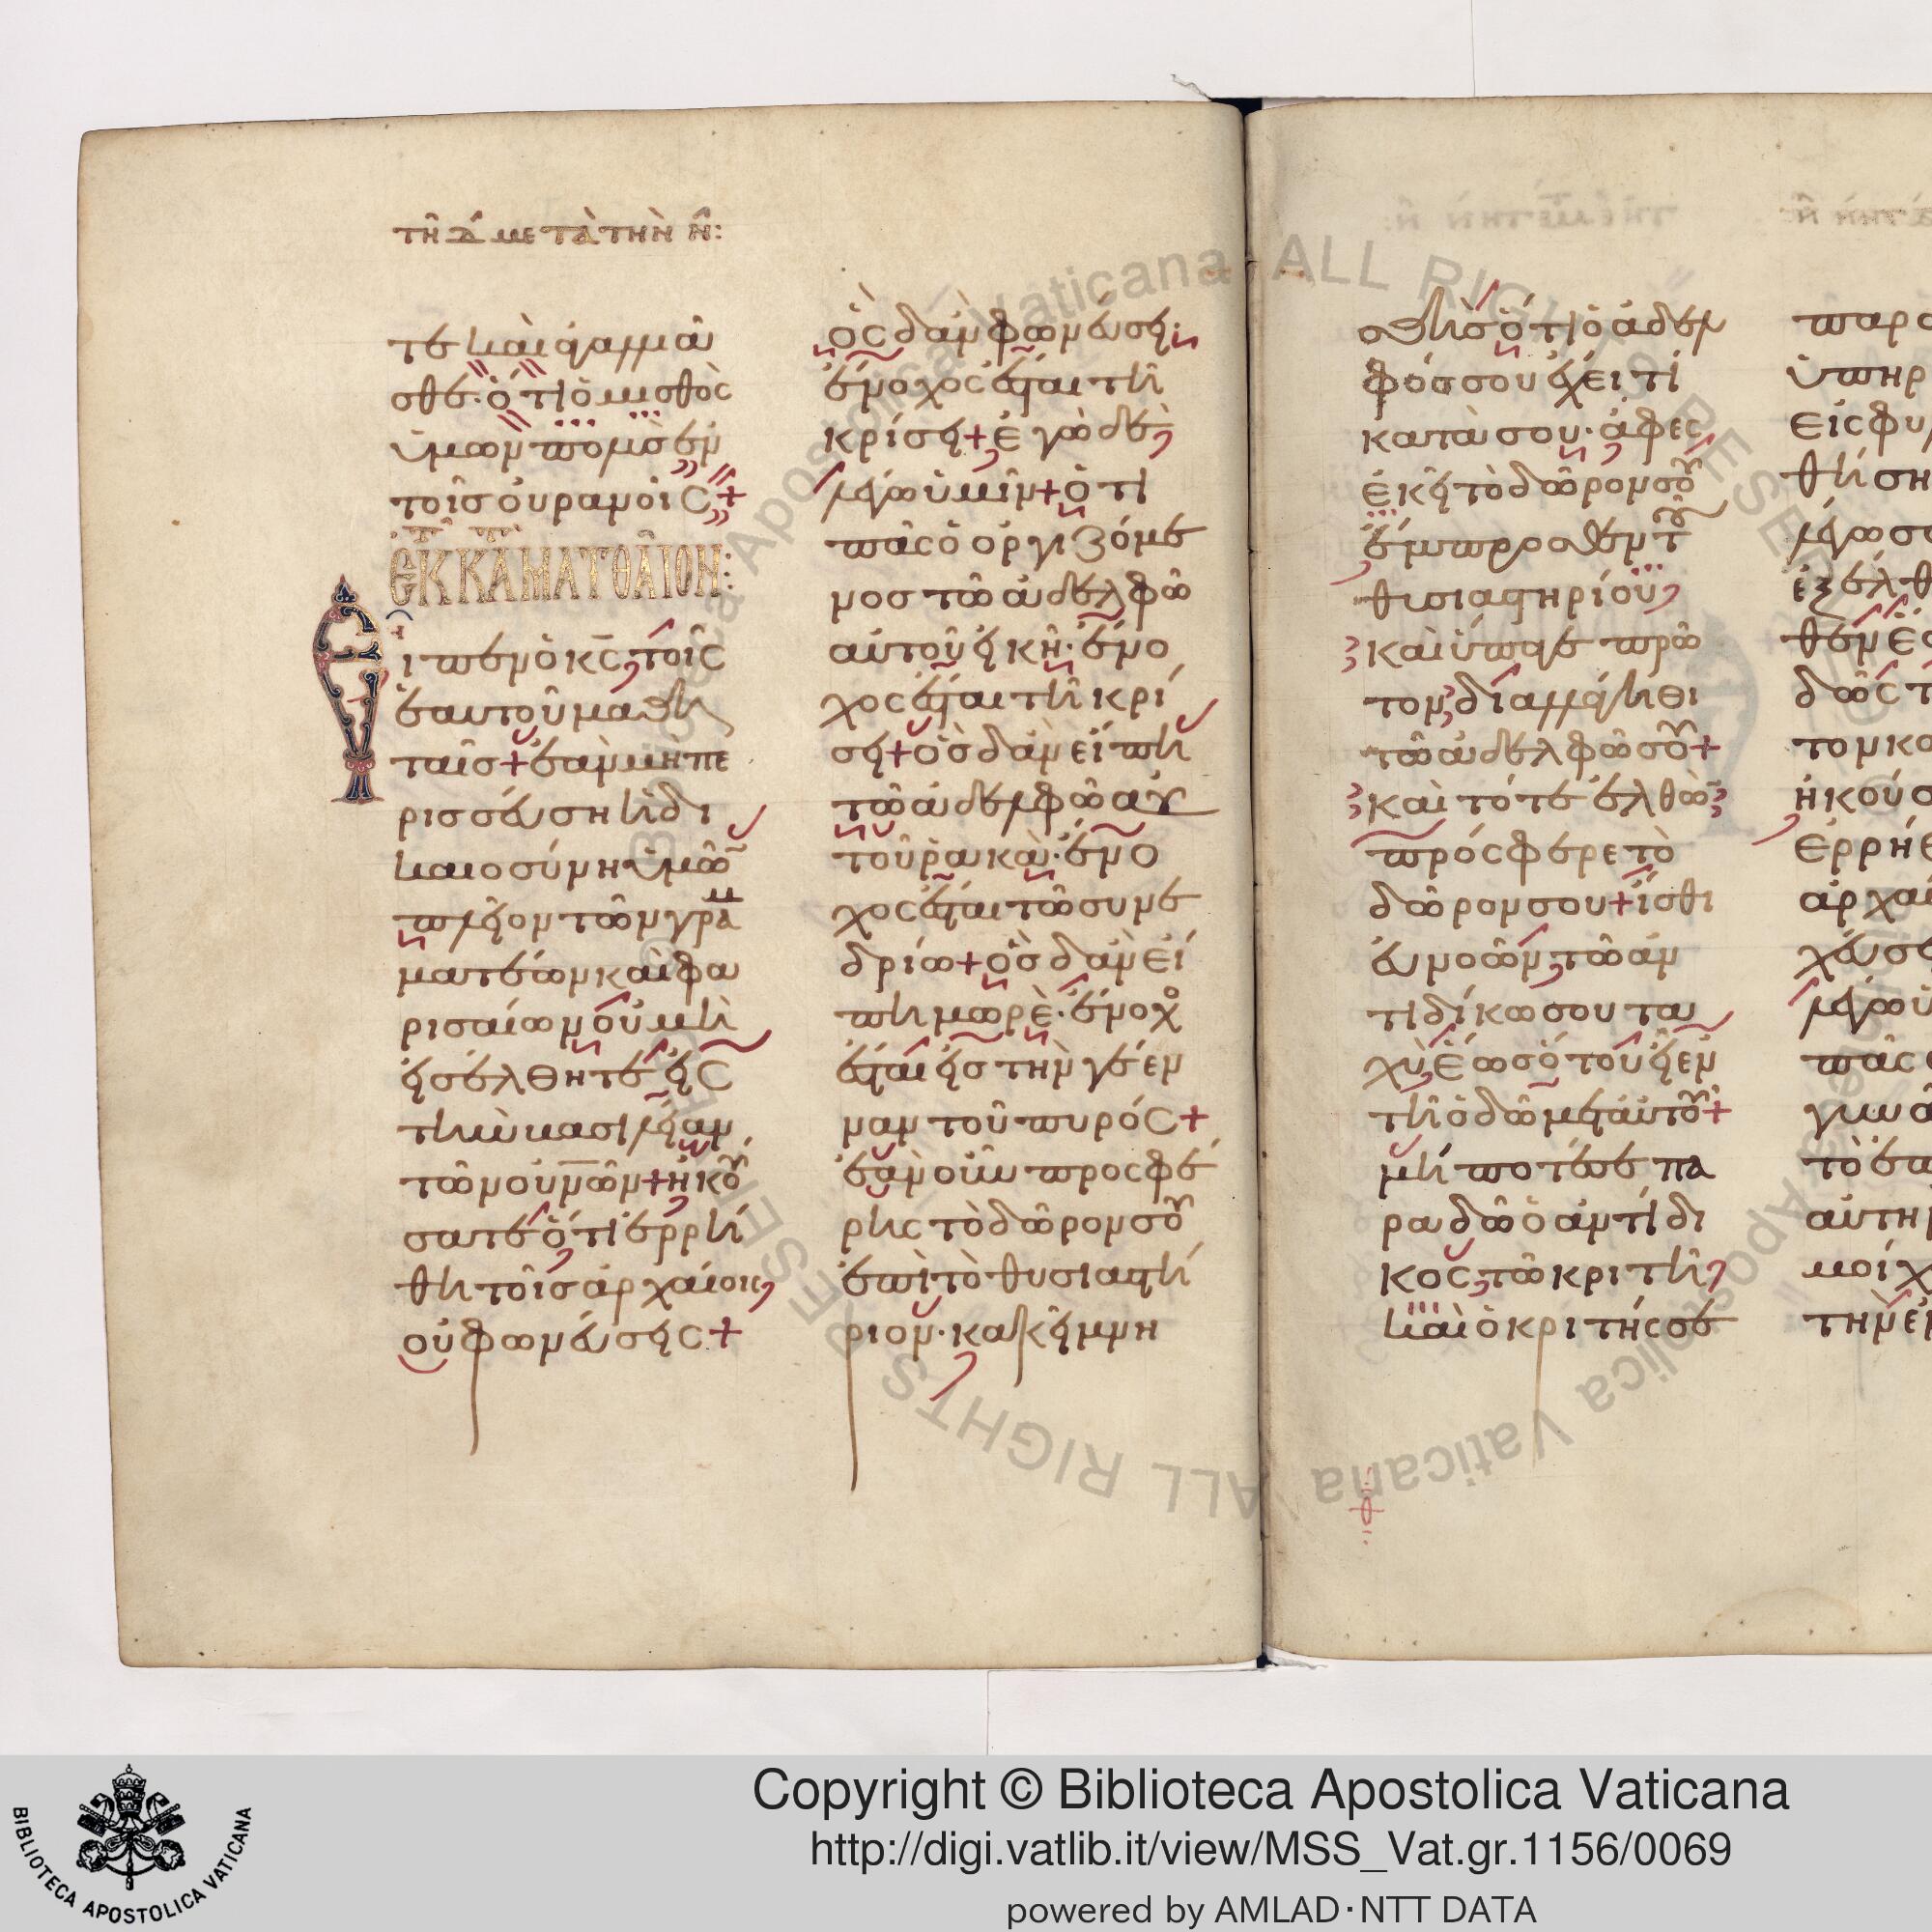 τῆ δ̄ μετὰ τὴν ν̄:
τε καὶ ἀγαλλιᾶ
σθε· ὅτι ὁ μισθὸς
ὑμῶν πολὺσ ἐν
τοῖσ οὐρανοῖς+
ἐκ κατὰ ματθαῖον:
Εἶπεν ὁ κς, τοῖς
ἑαυτοῦ μαθη
ταῖσ+ ἐὰν μὴ πε
ρισσεύση ἡ δι
καιοσύνη ὑμῶ
πλεῖον τῶν γραμ
ματέων καὶ φα
ρισαίων, οὐ μὴ
εἰσέλθητε εἰς
τὴν βασιλείαν
τῶν οὐνῶν+ ἠκού
σατε ὅτι ἐρρή
θη τοῖσ ἀρχαίοις,
οὐ φωνεύσεις+
ὃς δ' ἂν φωνεύσει·
ἔνοχος ἔσται τῆ
κρίσει+ ἐγὼ δὲ
λέγω ὑμῖν+ ὅτι
πᾶς ὁ ὀργιζόμε
νοσ τῶ ἀδελφῶ
αὐτοῦ εἰκῆ· ἔνο
χος ἔσται τῆ κρί
σει+ ὃσ δ' ἂν εἴπη
τῶ ἀδελφῶ αὐ
τοῦ ῥακά· ἔνο
χος ἔσται τῶ συνε
δρίω+ ὃσ δ' ἂν εἴ
πη μωρὲ· ἔνοχ
ἔσται εἰσ τὴν γέεν
ναν τοῦ πυρός+
ἐὰν οὖν προσφέ
ρης τὸ δῶρον σοῦ
ἐπὶ τὸ θυσιαστή
ριον· κακεῖ μνη
σθῆσ ὅτι ὁ ἀδελ
φόσ σου ἔχει τί
κατὰ σου· ἄφες
ἐκεῖ τὸ δῶρον σοῦ
ἔμπροσθεν τοῦ
θυσιαστηρίου,
καὶ ὕπαγε πρῶ
τον, διαλλάγηθι
τῶ ἀδελφῶ σοῦ+
καὶ τότε ἐλθὼ
πρόσφερε τὸ
δῶρον σου+ ἴσθι
εὐνοῶν, τῶ ἀν
τιδίκω σου τα
χὺ ἕωσ ὅτου εἶ ἐν
τῆ ὁδῶ μετ' αὐτοῦ+
μή ποτέ σε πα
ραδῶ ὁ ἀντίδι
κος, τῶ κριτῆ,
καὶ ὁ κριτής σε
παρα
ὑπηρ
εἰς φυ
θήση
λέγω σ
ἐξέλθ
θεν ἕ
δῶς τ
τον κο
ἠκούσ
ἐρρήθ
ἀρχαί
χεύσε
λέγω ὑ
πᾶς
γυνα
τὸ ἐπ
αὐτὴ
μοίχ
τὴν ἐν
Copyright © Biblioteca Apostolica Vaticana
http://digi.vatlib.it/view/MSS_Vat.gr.1156/0069
powered by AMLAD·NTT DATA
BIBLIOTECA APOSTOLICA VATICANA